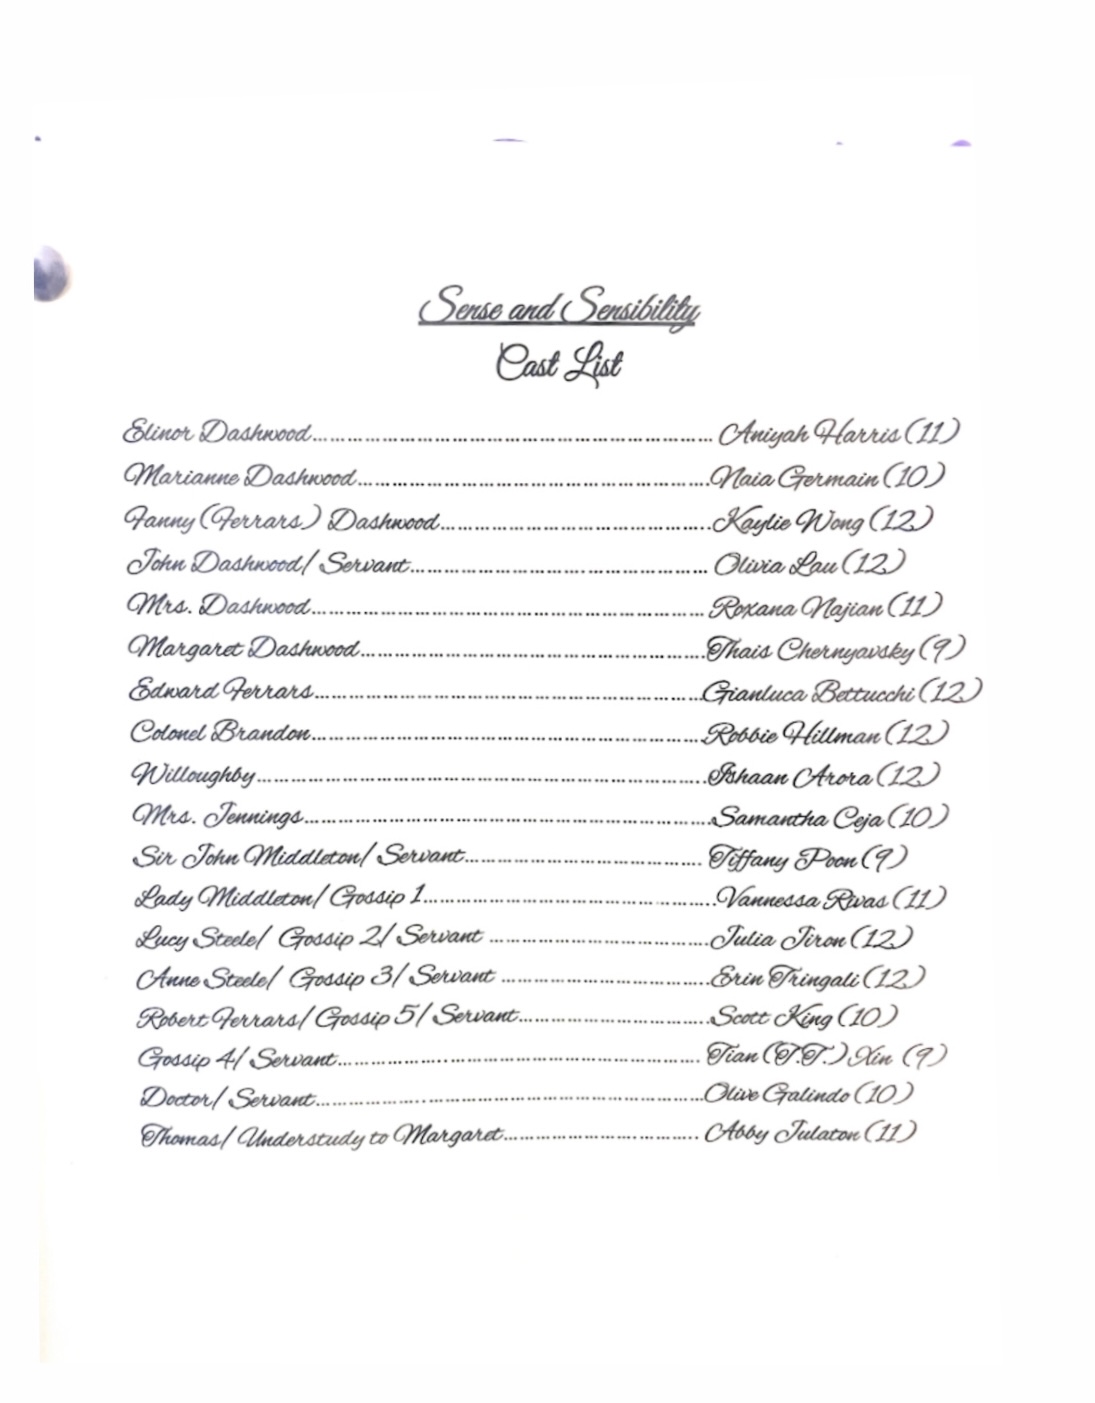 Sense and Sensibility
Cast List
Elinor Dashwood.......................................................... Aniyah Harris (11)
Marianne Dashwood...................................................Naia Germain (10)
Fanny (Ferrars) Dashwood.......................................Kaylie Wong (12)
John Dashwood/ Servant........................................... Olivia Lau (12)
Mrs. Dashwood.........................................................Roxana Najian (11)
Margaret Dashwood..................................................Thais Chernyavsky (9)
Edward Ferrars........................................................Gianluca Bettucchi (12)
Colonel Brandon........................................................Robbie Hillman (12)
Willoughby................................................................Ishaan Arora (12)
Mrs. Jennings...........................................................Samantha Ceja (10)
Sir John Middleton/ Servant.................................. Tiffany Poon (9)
Lady Middleton/ Gossip 1..........................................Vannessa Rivas (11)
Lucy Steele/ Gossip 2/ Servant ................................Julia Jiron (12)
Anne Steele/ Gossip 3/ Servant ..............................Erin Tringali (12)
Robert Ferrars/ Gossip 5/ Servant...........................Scott King (10)
Gossip 4/ Servant.................................................... Tian (T.T.) Xin (9)
Doctor/ Servant........................................................Olive Galindo (10)
Thomas/ Understudy to Margaret............................ Abby Julaton (11)